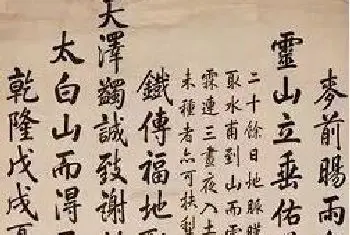 麥前暘雨
靈山立垂佑
二十餘日地脉
取水甫到山而雲
霖連三晝夜入土
未種者亦可扶犁
鐵傳福地
大澤蠲誠致謝
太白山而得
乾隆戊戌夏